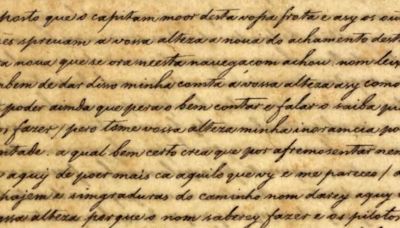 posto que o capitam moor desta vossa frota e asy os ou
es spreuam a vossa alteza a noua do achamento dest
a noua que se ora neesta nauegaçom achou. nom leix
bem de dar disso minha comta a vossa alteza asy como
poder aimda que pera o bem contar e falar o saiba pi
os fazer / pero tome vossa alteza minha inorancia po
ntade. a qual bem certo crea que por afremosentar nem
aquy de poer mais ca aquilo que vy e me pareceo / 
pajem e simgraduras do caminho nom darey aquy
ssa alteza porque o nom saberey fazer e os pilotos